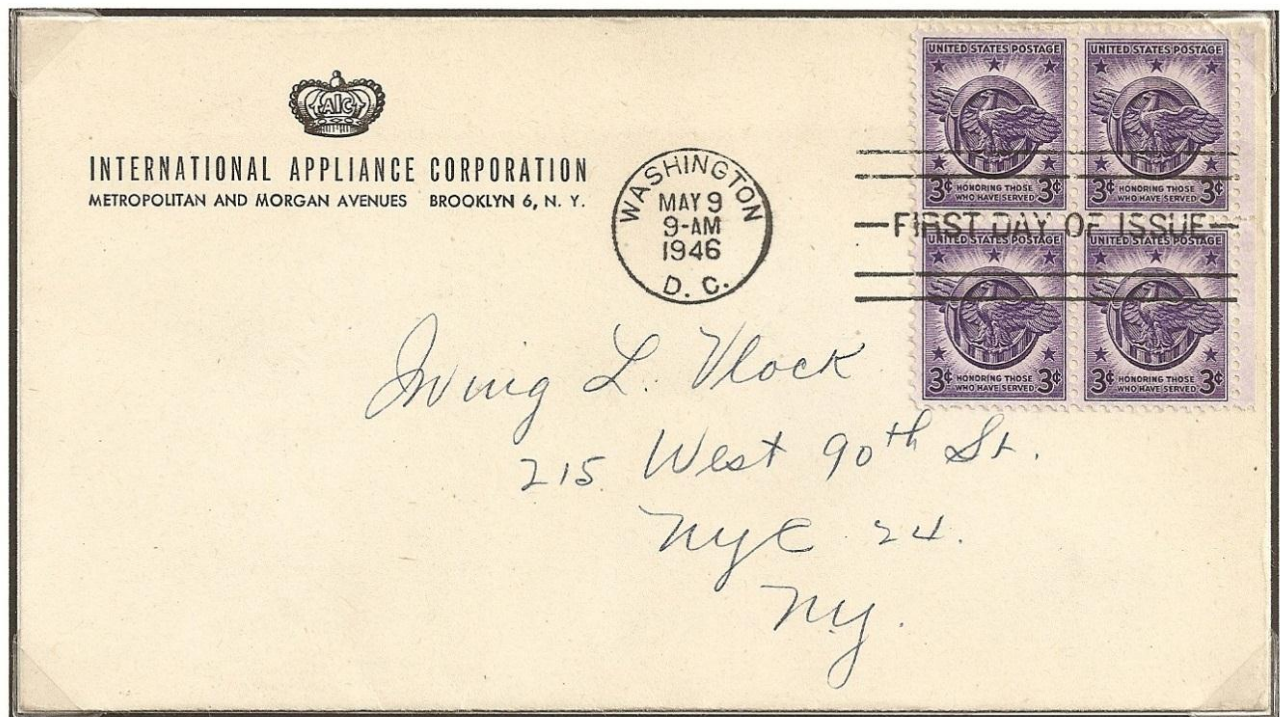 AIC
INTERNATIONAL APPLIANCE CORPORATION
METROPOLITAN AND MORGAN AVENUES BROOKLYN 6, N. Y.
WASHINGTON
MAY 9
9-AM
1946
D. C.
UNITED STATES POSTAGE
3¢ HONORING THOSE 3¢
WHO HAVE SERVED
UNITED STATES POSTAGE
3¢ HONORING THOSE 3¢
WHO HAVE SERVED
FIRST DAY OF ISSUE
UNITED STATES POSTAGE
3¢ HONORING THOSE 3¢
WHO HAVE SERVED
UNITED STATES POSTAGE
3¢ HONORING THOSE 3¢
WHO HAVE SERVED
Irving L. Vlock
215 West 90th St.
NYC 24.
NY.